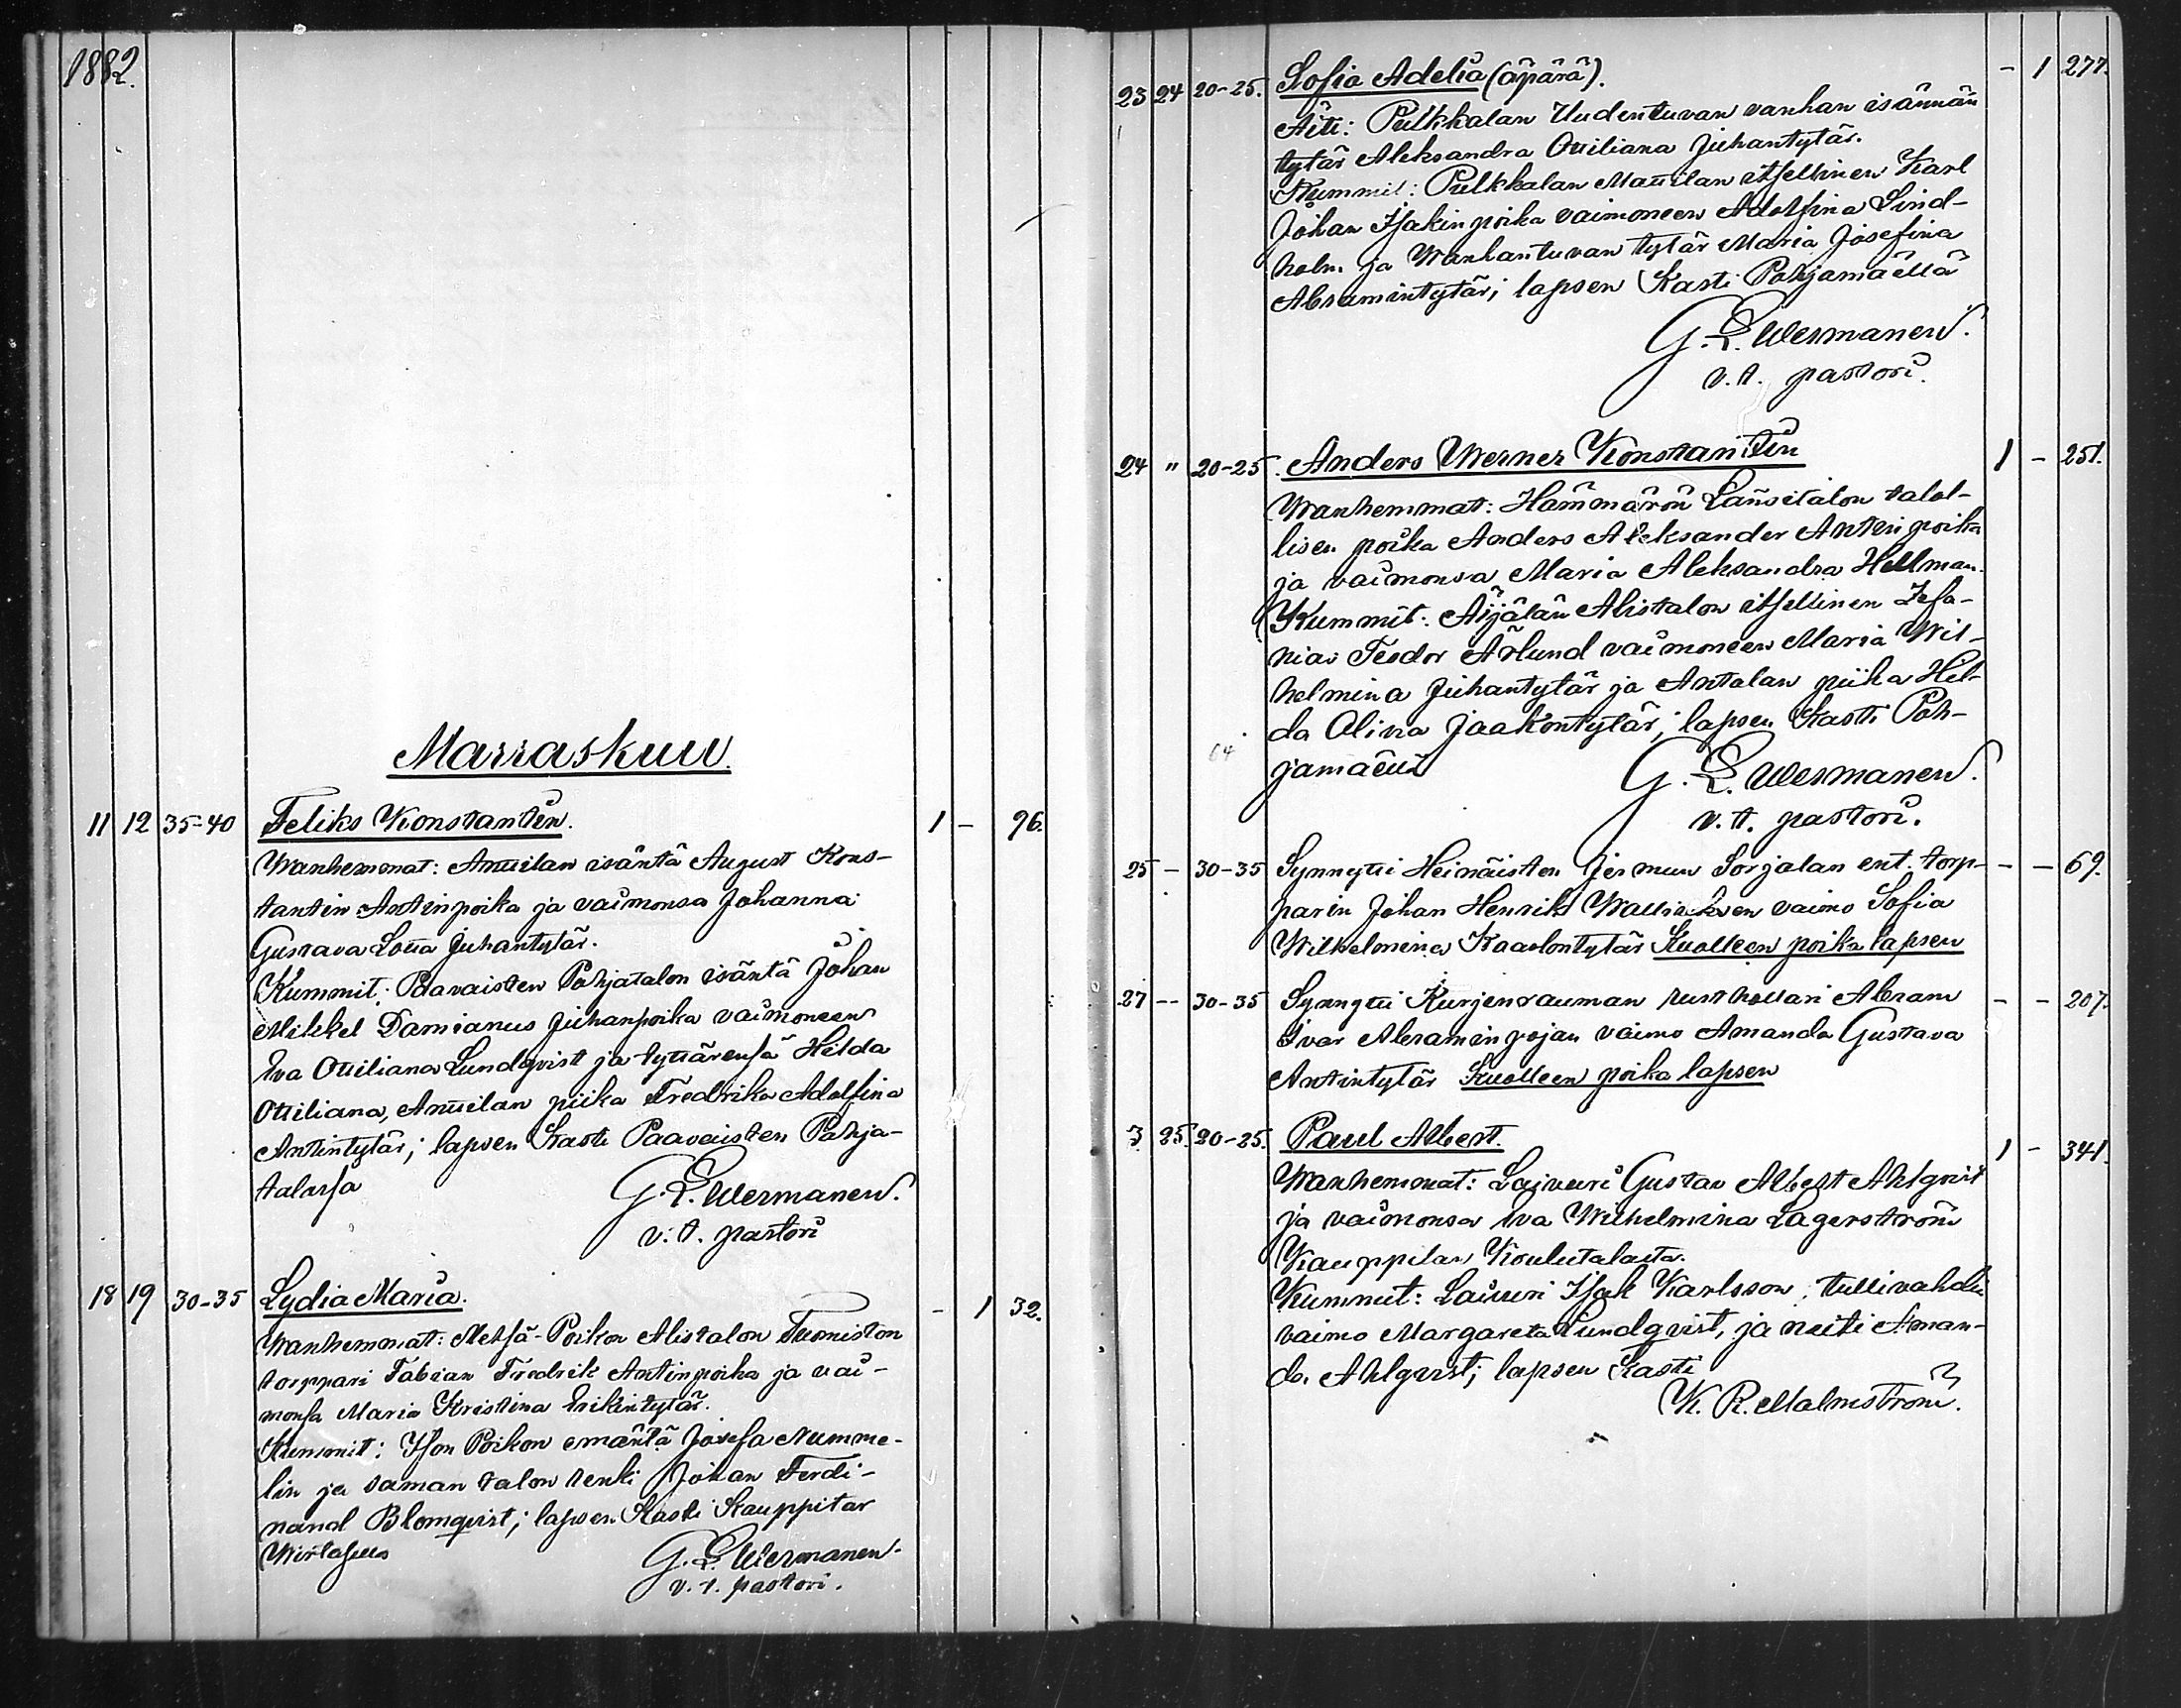 1882.
Marraskuu.
11 12 35-40 Feliks Konstantin. 1 - 96.
Wanhemmat: Anttilan isäntä August Kons-
tantin Antinpoika ja vaimonsa Johanna
Gustava Lotta Juhantytär.
Kummit: Paavaisten Pohjatalon isäntä Johan
Mikkel Damianus Juhanpoika vaimoneen
Eva Ottiliana Lundqvist ja tyttärensä Hilda
Ottiliana, Anttilan piika Fredrika Adolfina
Antintytär; lapsen kasti Paavaisten Pohja-
talossa G. L. Wermanen.
v. t. pastori
18 19 30-35 Lydia Maria. - 1 32.
Wanhemmat: Metsä-Poikon Alistalon Tuomiston
torppari Fabian Fredrik Antinpoika ja vai-
monsa Maria Kristina Erikintytär.
Kummit: Ison Poikon emäntä Josefa Numme-
lin ja saman talon renki Johan Ferdi-
nand Blomqvist; lapsen kasti Kauppilar
G. L. Wermanen.
v. t. pastori.
23 24 20-25. Sofia Adelia (äpärä). - 1 277.
Äiti: Pulkkalan Uudentuvan vanhan isännän
tytär Aleksandra Ottiliana Juhantytär.
Kummit: Pulkkalan Mattilan itsellinen Karl
Johan Isakinpoika vaimoneen Adolfina Lind-
holm ja Wanhantuvan tytär Maria Josefina
Abramintytär; lapsen kasti Pohjamäellä
G. L. Wermanen.
v. t. pastori.
24 " 20-25. Anders Werner Konstantin 1 - 251.
Wanhemmat: Hämmärön Länsitalon talol-
lisen poika Anders Aleksander Antinpoika
ja vaimonsa Maria Aleksandra Hellman.
Kummit: Äijälän Alistalon itsellinen Jefa-
nias Teodor Åhlund vaimoneen Maria Wil-
helmina Juhantytär ja Antolan piika Hil-
da Olivia Jaakontytär; lapsen kasti Poh-
64 jamäellä G. L. Wermanen.
v. t. pastori.
25 - 30-35 Synnytti Heinäisten Jermun Sorjalan ent. torp- - - 69.
parin Johan Henrik vaimo Sofia
Wilhelmina Kaarlontytär Kuolleen poika lapsen
27 -- 30-35 Synnytti Kurjenrauman rusthollari Abram - - 207.
Ivar Abraminpojan vaimo Amanda Gustava
Antintytär Kuolleen poika lapsen
3 25. 20-25. Paul Albert. 1 - 341.
Wanhemmat: Lajvuri Gustav Albert Ahlqvist
ja vaimonsa Eva Wilhelmina Lagerström
Kauppilan Koulutalosta.
Kummit: Laivuri Isak Karlsson, tullivahdin
vaimo Margareta Lundqvist, ja neiti Aman-
da Ahlqvist; lapsen kasti
K. R. Malmström.